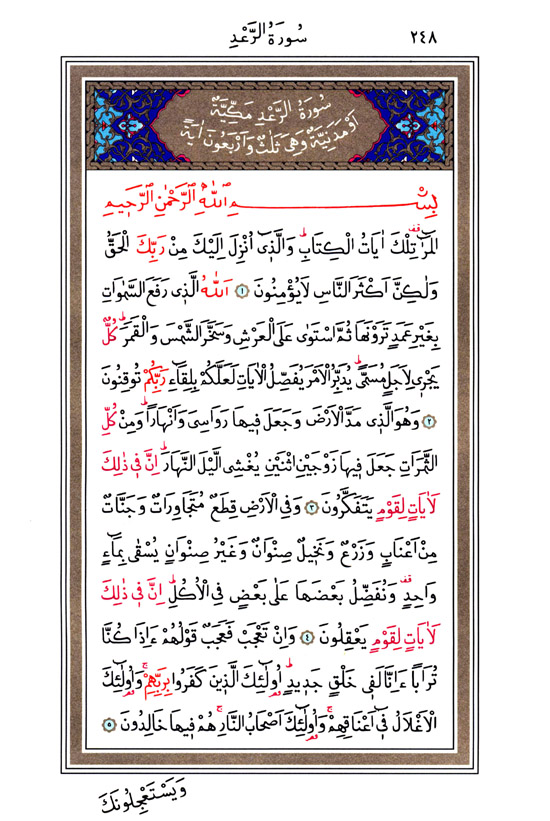 ٢٤٨
سُورَةُ الرَّعْدِ
سُورَةُ الرَّعْدِ مَكِّيَّةٌ
اَوْ مَدَنِيَّةٌ وَهِيَ ثَلٰثٌ وَاَرْبَعُونَ اٰيَةً
بِسْمِ اللّٰهِ الرَّحْمٰنِ الرَّحٖيمِ
الٓمٓرٰ تِلْكَ اٰيَاتُ الْكِتَابِ وَالَّذٖٓي اُنْزِلَ اِلَيْكَ مِنْ رَبِّكَ الْحَقُّ
وَلٰكِنَّ اَكْثَرَ النَّاسِ لَا يُؤْمِنُونَ ﴿١﴾ اَللّٰهُ الَّذٖي رَفَعَ السَّمٰوَاتِ
بِغَيْرِ عَمَدٍ تَرَوْنَهَا ثُمَّ اسْتَوٰى عَلَى الْعَرْشِ وَسَخَّرَ الشَّمْسَ وَالْقَمَرَ كُلٌّ
يَجْرٖي لِاَجَلٍ مُسَمًّى يُدَبِّرُ الْاَمْرَ يُفَصِّلُ الْاٰيَاتِ لَعَلَّكُمْ بِلِقَٓاءِ رَبِّكُمْ تُوقِنُونَ
﴿٢﴾ وَهُوَ الَّذٖي مَدَّ الْاَرْضَ وَجَعَلَ فٖيهَا رَوَاسِيَ وَاَنْهَارًا وَمِنْ كُلِّ
الثَّمَرَاتِ جَعَلَ فٖيهَا زَوْجَيْنِ اثْنَيْنِ يُغْشِي الَّيْلَ النَّهَارَ اِنَّ فٖي ذٰلِكَ
لَاٰيَاتٍ لِقَوْمٍ يَتَفَكَّرُونَ ﴿٣﴾ وَفِي الْاَرْضِ قِطَعٌ مُتَجَاوِرَاتٌ وَجَنَّاتٌ
مِنْ اَعْنَابٍ وَزَرْعٌ وَنَخٖيلٌ صِنْوَانٌ وَغَيْرُ صِنْوَانٍ يُسْقٰى بِمَٓاءٍ
وَاحِدٍ وَنُفَضِّلُ بَعْضَهَا عَلٰى بَعْضٍ فِي الْاُكُلِ اِنَّ فٖي ذٰلِكَ
لَاٰيَاتٍ لِقَوْمٍ يَعْقِلُونَ ﴿٤﴾ وَاِنْ تَعْجَبْ فَعَجَبٌ قَوْلُهُمْ ءَاِذَا كُنَّا
تُرَابًا ءَاِنَّا لَفٖي خَلْقٍ جَدٖيدٍ اُولٰٓئِكَ الَّذٖينَ كَفَرُوا بِرَبِّهِمْ وَاُولٰٓئِكَ
الْاَغْلَالُ فٖٓي اَعْنَاقِهِمْ وَاُولٰٓئِكَ اَصْحَابُ النَّارِ هُمْ فٖيهَا خَالِدُونَ ﴿٥﴾
وَيَسْتَعْجِلُونَكَ